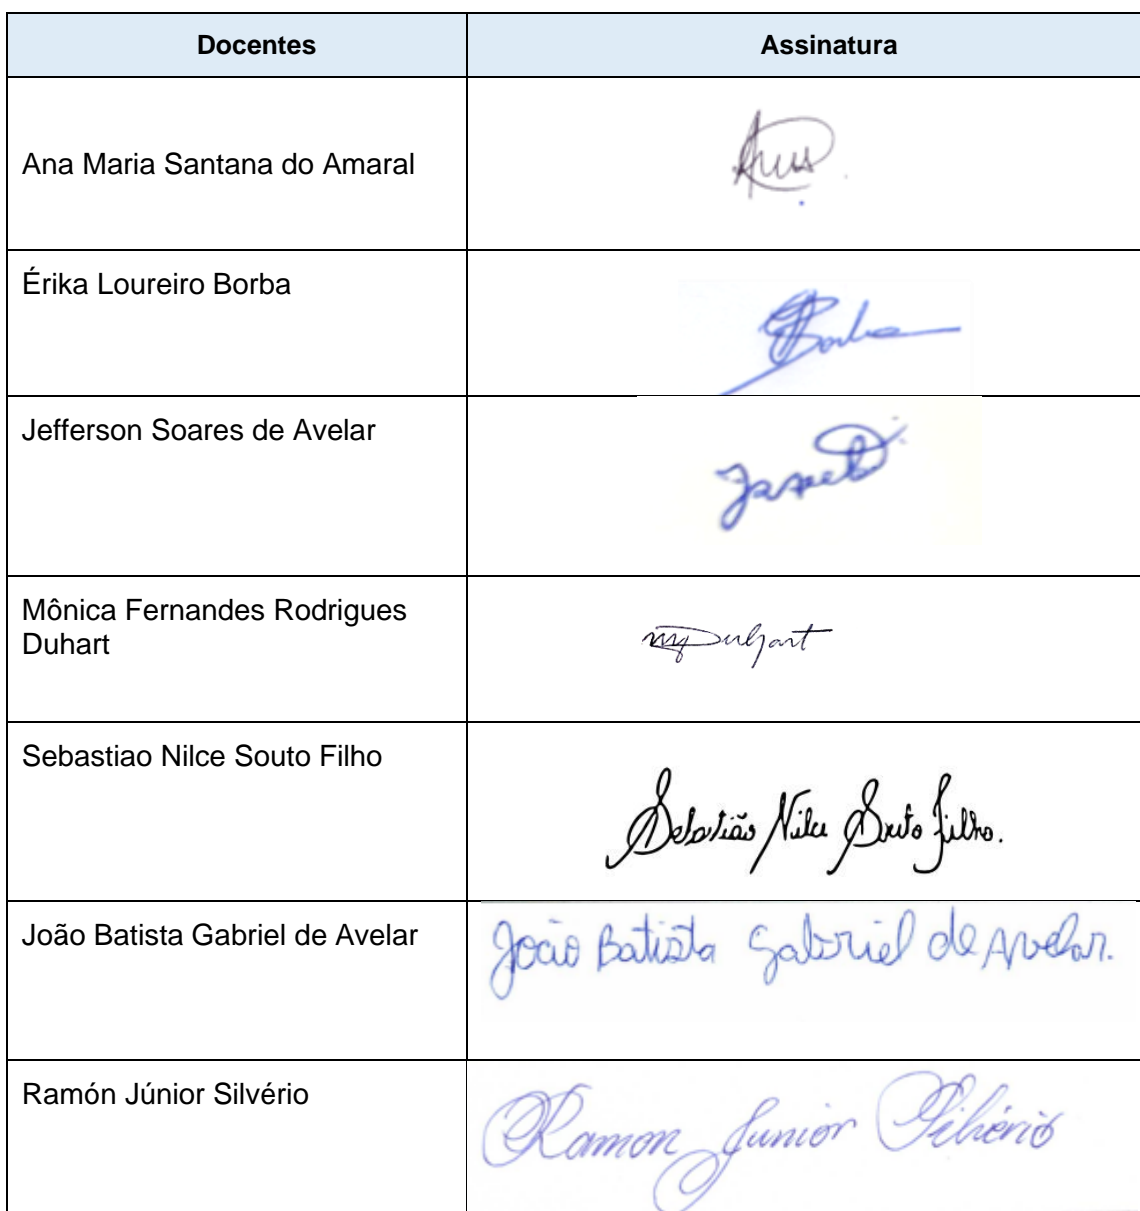 Docentes Assinatura
Ana Maria Santana do Amaral
Érika Loureiro Borba
Borba
Jefferson Soares de Avelar
Mônica Fernandes Rodrigues
Duhart
Duhart
Sebastiao Nilce Souto Filho
Sebastião Nilce Souto Filho.
João Batista Gabriel de Avelar
João Batista Gabriel de Avelar.
Ramón Júnior Silvério
Ramon Junior Silvério